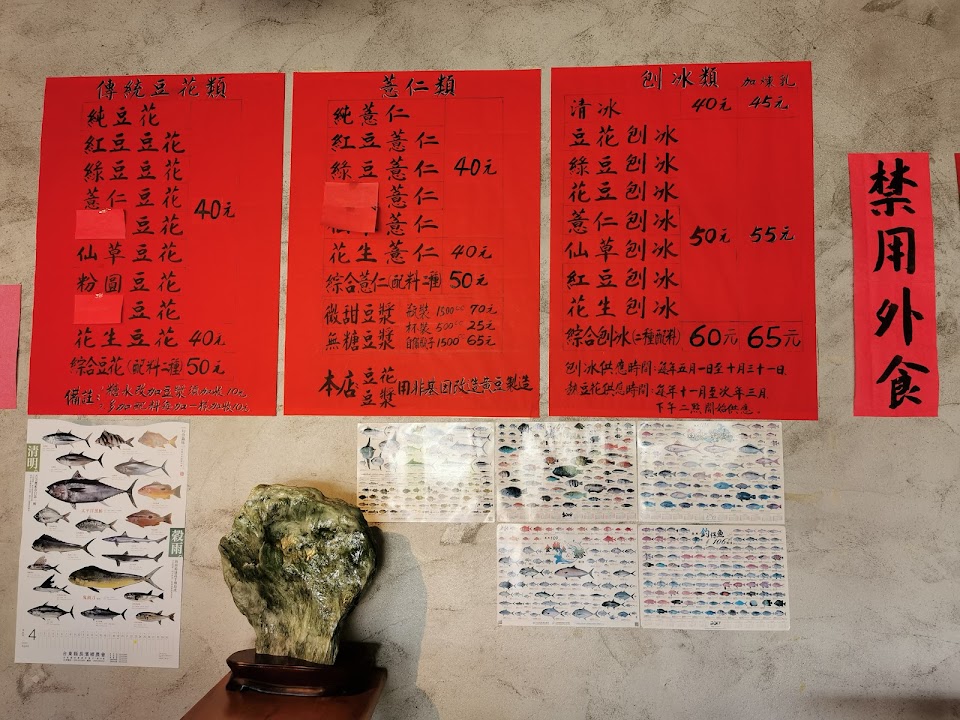 傳統豆花類
純豆花
紅豆豆花
綠豆豆花
薏仁豆花
豆花
仙草豆花
粉圓豆花
豆花
40元
花生豆花 40元
綜合豆花(配料二種) 50元
備註:糖水改加豆漿
薏仁類
純薏仁
紅豆薏仁
綠豆薏仁
薏仁
薏仁
40元
花生薏仁 40元
綜合薏仁(配料二種) 50元
微甜豆漿
無糖豆漿
瓶裝 1500cc 70元
杯裝 500cc 25元
1500 65元
本店豆花
豆漿
用非基因改造黃豆製造
刨冰類 加煉乳
清冰 40元 45元
豆花刨冰
綠豆刨冰
花豆刨冰
薏仁刨冰
仙草刨冰
紅豆刨冰
花生刨冰
50元 55元
綜合刨冰(二種配料) 60元 65元
刨冰供應時間:每年五月一日至十月三十一日.
熱豆花供應時間:每年十一月至次年三月.
下午二點開始供應.
禁用外食
清明
穀雨
4
釣仔魚